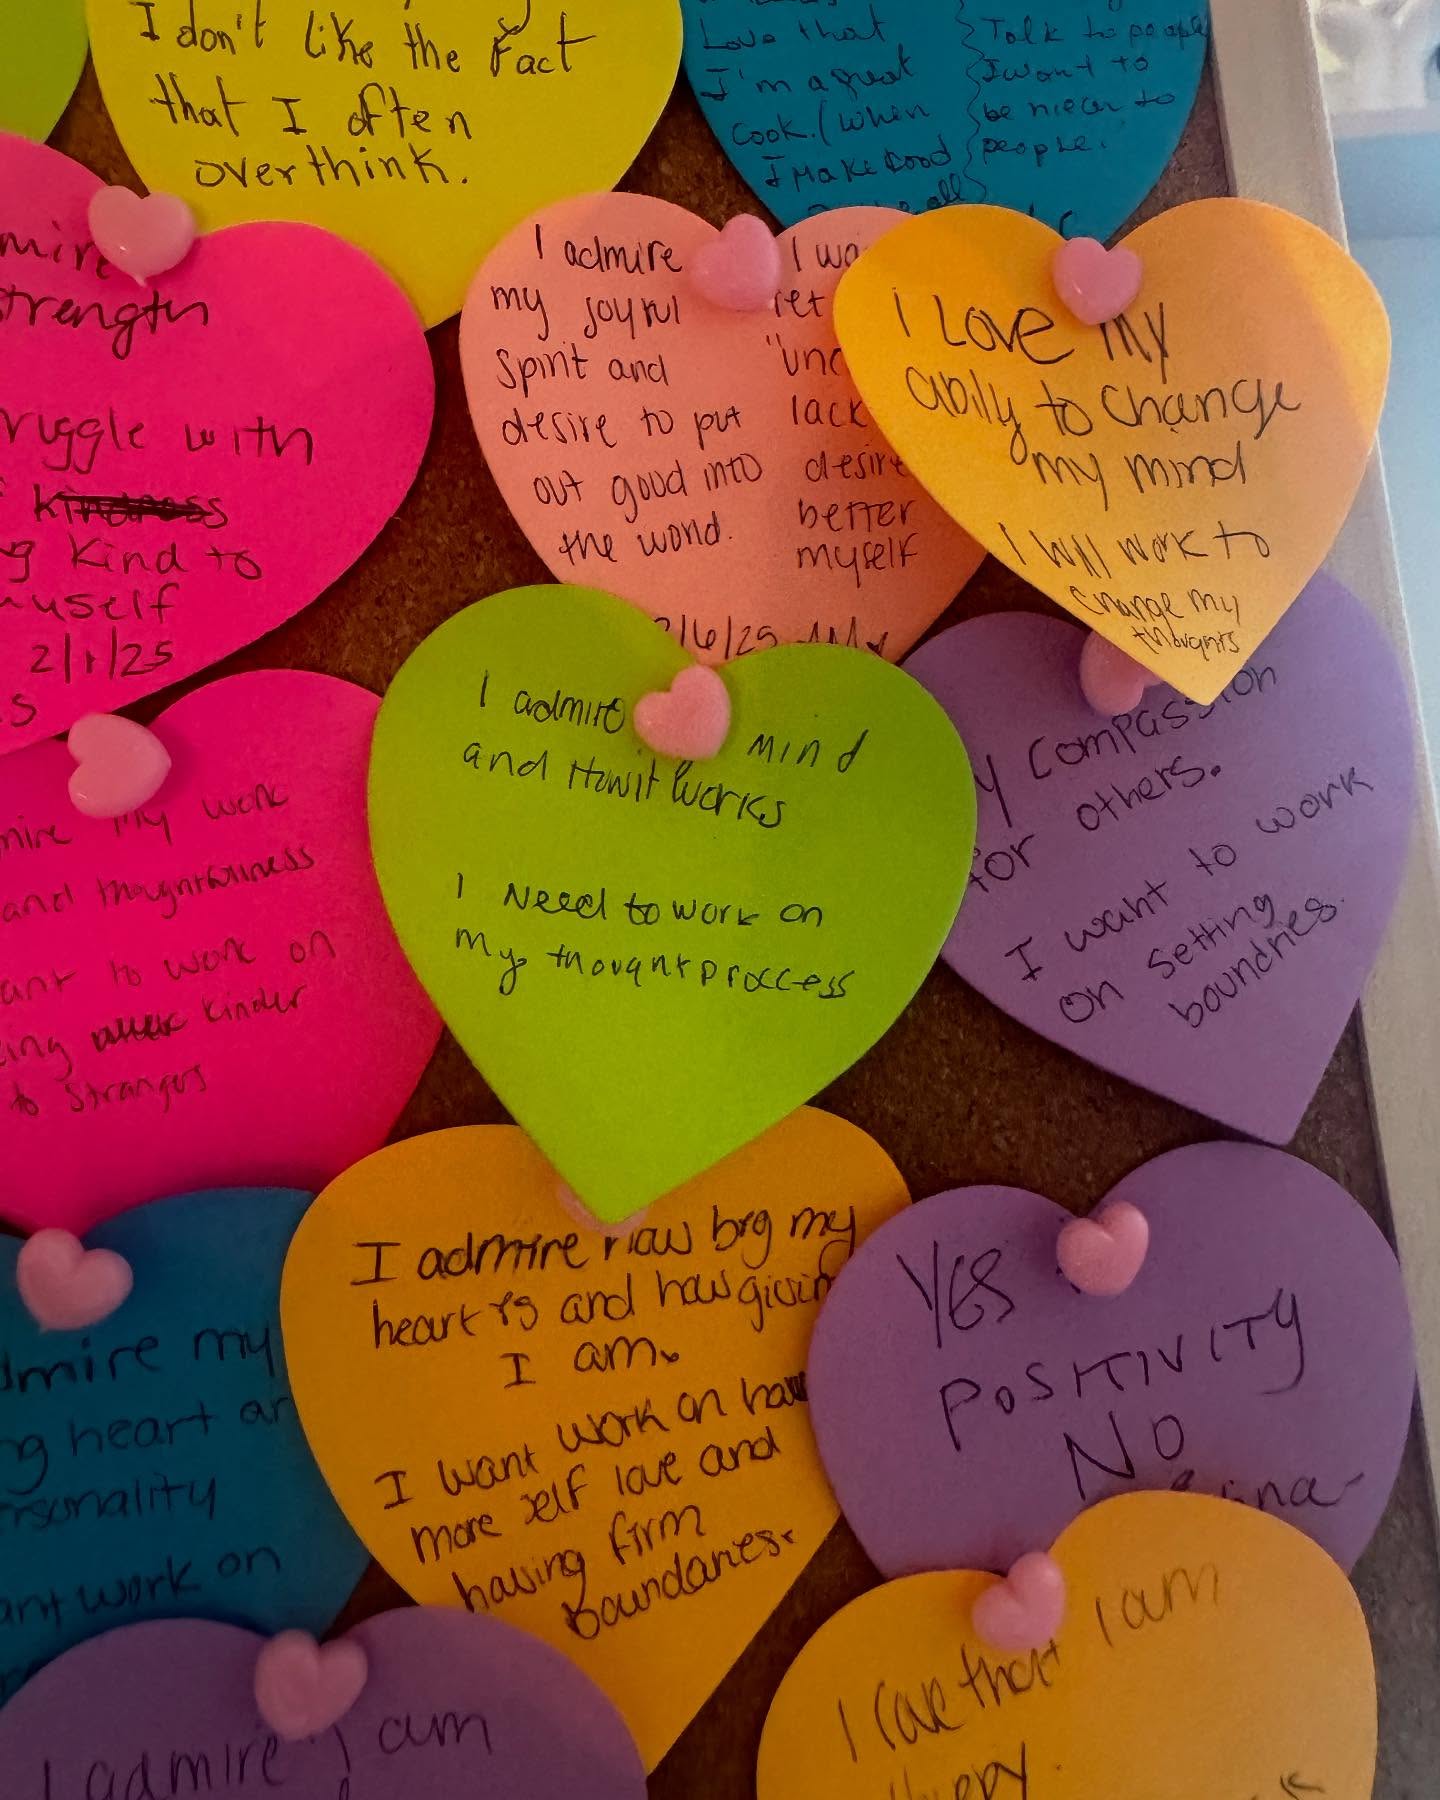 I don't like the Fact
that I often
overthink.
Love that
I'm a great
cook. (when
I Make Good
all
Talk to people
I want to
be nicer to
people.
trength
ruggle with
Kindness
g Kind to
myself
2/1/25
I admire
my joyful
spirit and
desire to put
out good into
the world.
I wa
ret
"unc
lack
desire
better
myself
2/6/25
I Love my
abiliy to change
my mind
I will work to
change my
thoughts
mire my work
and thoughtfullness
ant to work on
ing kinder
to strangers
I admire mind
and How it works
I Need to work on
my thought proccess
y compassion
for others.
I want to work
on setting
boundries.
dmire my
ng heart an
rsonality
ant work on
I admire how big my
heart is and how givin
I am.
I want work on hav
more self love and
having firm
boundaries.
YES
POSITIVITY
NO
I admire I am
I love that I am
happy.